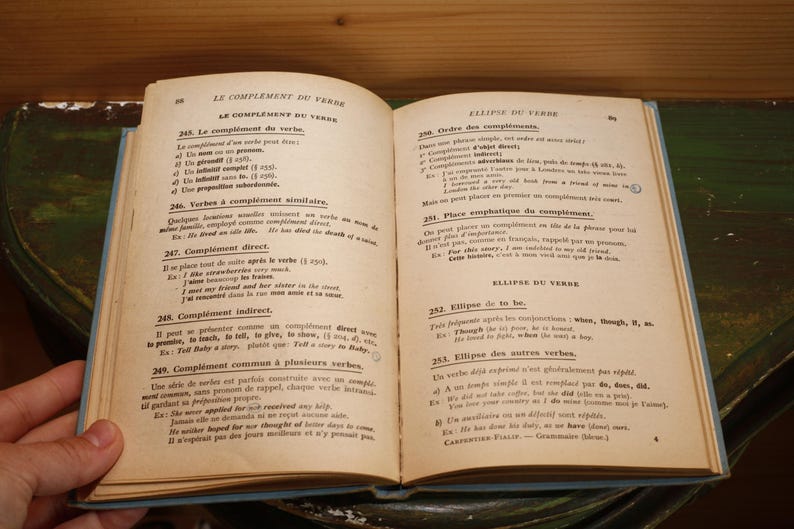 88
LE COMPLÉMENT DU VERBE
LE COMPLÉMENT DU VERBE
245. Le complément du verbe.
Le complément d'un verbe peut être :
a) Un nom ou un pronom.
b) Un gérondif (§ 258).
c) Un infinitif complet (§ 255).
d) Un infinitif sans to. (§ 256).
e) Une proposition subordonnée.
246. Verbes à complément similaire.
Quelques locutions usuelles unissent un verbe au nom de
même famille, employé comme complément direct.
Ex : He lived an idle life. He has died the death of a saint.
247. Complément direct.
Il se place tout de suite après le verbe (§ 250).
Ex : I like strawberries very much.
J'aime beaucoup les fraises.
I met my friend and her sister in the street.
J'ai rencontré dans la rue mon amie et sa sœur.
248. Complément indirect.
Il peut se présenter comme un complément direct avec
to promise, to teach, to tell, to give, to show, (§ 204, d), etc.
Ex : Tell Baby a story. plutôt que : Tell a story to Baby.
249. Complément commun à plusieurs verbes.
Une série de verbes est parfois construite avec un complé-
ment commun, sans pronom de rappel, chaque verbe intransi-
tif gardant sa préposition propre.
Ex : She never applied for nor received any help.
Jamais elle ne demanda ni ne reçut aucune aide.
He neither hoped for nor thought of better days to come.
Il n'espérait pas des jours meilleurs et n'y pensait pas.
ELLIPSE DU VERBE
89
250. Ordre des compléments.
Dans une phrase simple, cet ordre est assez strict :
1° Complément d'objet direct ;
2° Complément indirect ;
3° Compléments adverbiaux de lieu, puis de temps (§ 281, b).
Ex : J'ai emprunté l'autre jour à Londres un très vieux livre
à un de mes amis.
I borrowed a very old book from a friend of mine in
London the other day.
Mais on peut placer en premier un complément très court.
251. Place emphatique du complément.
On peut placer un complément en tête de la phrase pour lui
donner plus d'importance.
Il n'est pas, comme en français, rappelé par un pronom.
Ex : For this story, I am indebted to my old friend.
Cette histoire, c'est à mon vieil ami que je la dois.
ELLIPSE DU VERBE
252. Ellipse de to be.
Très fréquente après les conjonctions : when, though, if, as.
Ex : Though (he is) poor, he is honest.
He loved to fight, when (he was) a boy.
253. Ellipse des autres verbes.
Un verbe déjà exprimé n'est généralement pas répété.
a) A un temps simple il est remplacé par do, does, did.
Ex : We did not take coffee, but she did (elle en a pris).
You love your country as I do mine (comme moi je l'aime).
b) Un auxiliaire ou un défectif sont répétés.
Ex : He has done his duty, as we have (done) ours.
CARPENTIER-FIALIP. — Grammaire (bleue).
4